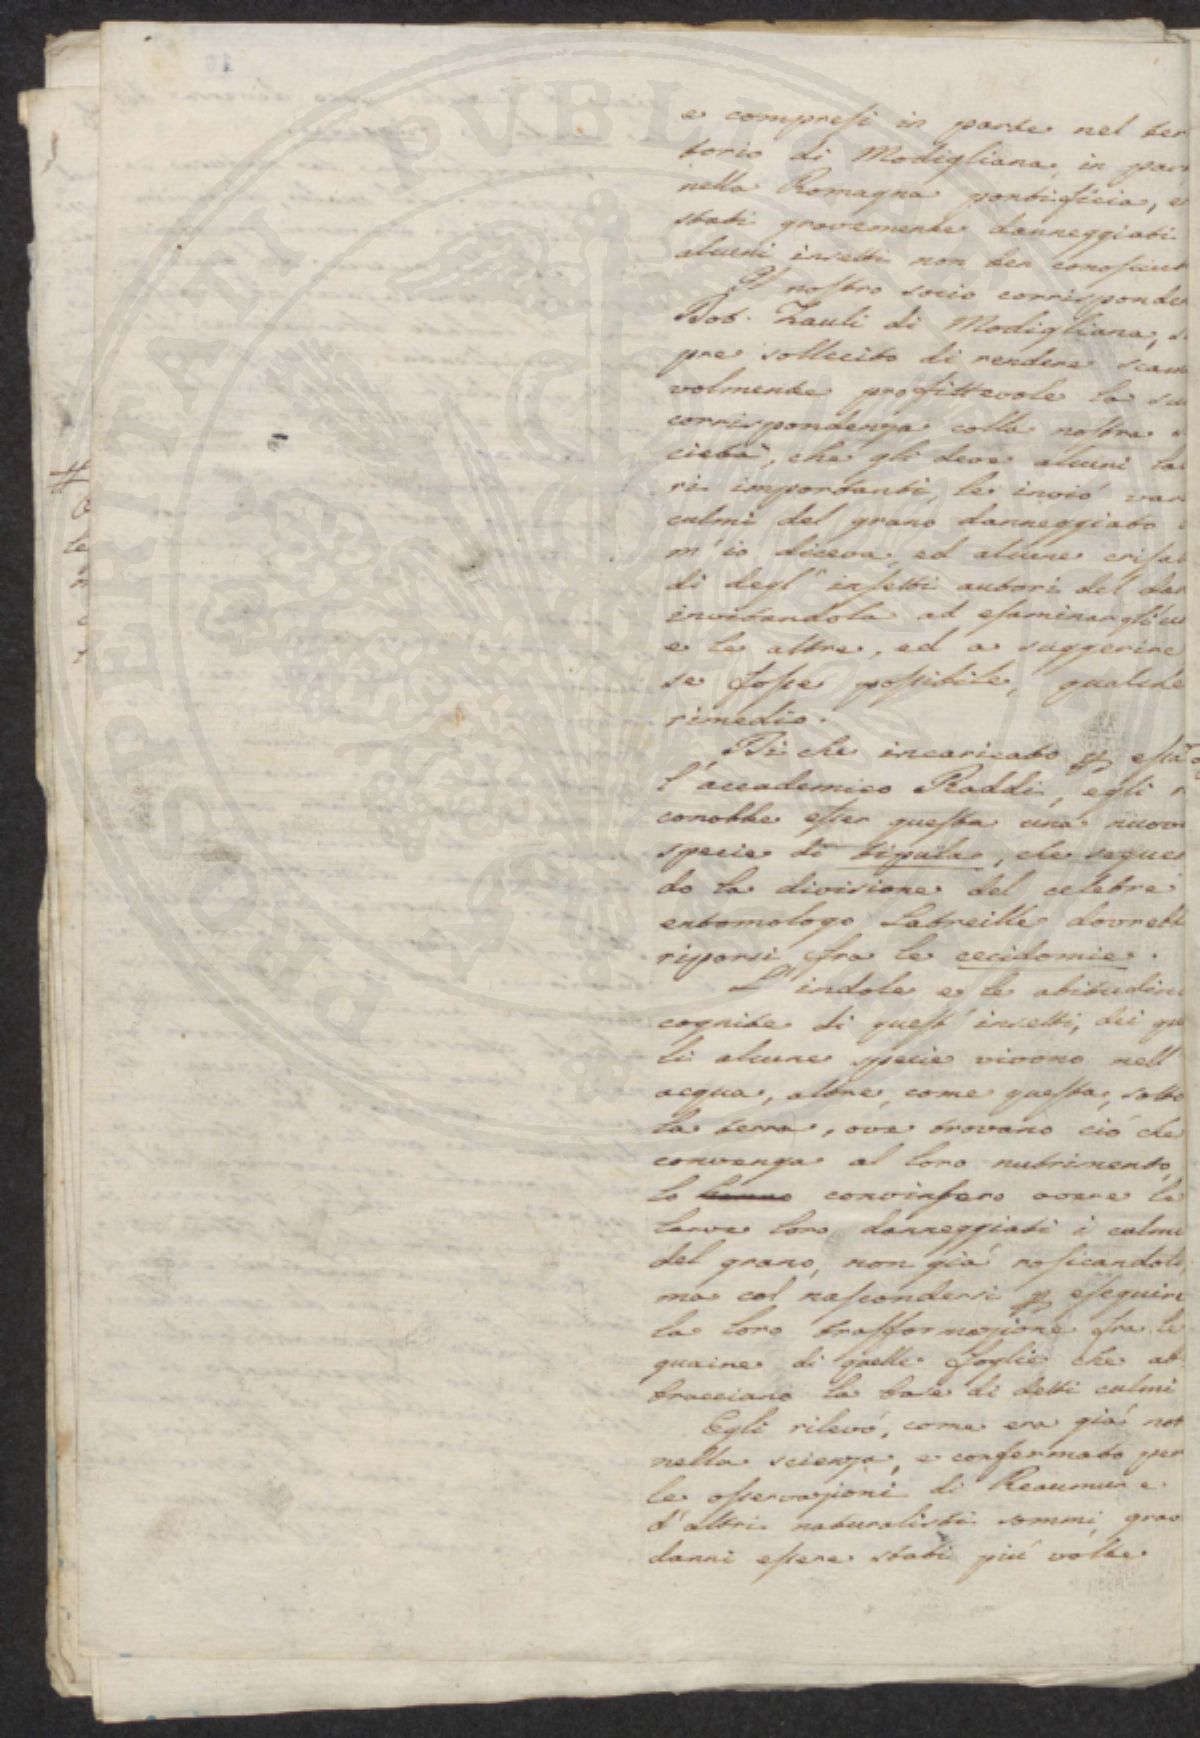 e compresi in parte nel ter
torio di Modigliana, in par
nella Romagna pontificia, e
stati gravemente danneggiati
alcuni insetti non ben conosciut
Il nostro socio corrisponden
Dot. Zauli di Modigliana, s
pre sollecito di rendere scam
volmente profittevole la su
corrispondenza colla nostra
cietà, che gli deve alcuni la
ri importanti, le inviò var
culmi del grano danneggiato
m'io diceva, ed alcune crisal
di degl'insetti autori del dan
invitandola ad esaminar gl'u
e le altre, ed a suggerire
se fosse possibile, qualche
rimedio.
Di che incaricato
l'accademico Raddi, egli r
conobbe esser questa una nuov
specie di tipula, che seguen
do la divisione del celebre
entomologo Latreille dovrebb
riporsi fra le cecidomie.
L'indole e le abitudini
cognite di quest'insetti, dei qu
li alcune specie vivono nell'
acqua, altre, come questa, sotto
la terra, ove trovano ciò che
convenga al loro nutrimento,
lo convinsero avere le
larve loro danneggiati i culmi
del grano, non già rosicandoli
ma col nascondersi p eseguire
la loro trasformazione fra le
guaine di quelle foglie che ab
bracciano la base di detti culmi
Egli rilevò, come era già not
nella scienza, e confermato per
le osservazioni di Reaumur e
d'altri naturalisti sommi, grav
danni essere stati più volte
PERITI PVBLICAE